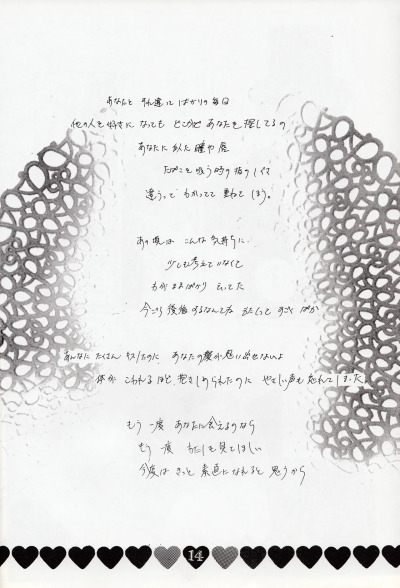 あなたと すれ違って ばかりの毎日
他の人を好きに なっても どこかで あなたを 探してるの
あなたに 似た 瞳や 唇
たばこを 吸う時の 指の しぐさ
違うって わかってて 重ねて しまう。
あの頃は こんな 気持ちに
少しも考えて いなくて
わがままばかり 言ってた
今ごろ 後悔するなんてね わたしって すごく ばか
あんなに たくさん キスしたのに あなたの 唇が 思い出せないよ
体が こわれるほど 抱きしめられたのに やさしい声も 忘れてしまった。
もう 一度 あなたに 会えるのなら
もう 一度 わたしを 見てほしい
今度は きっと 素直に なれると 思うから
14